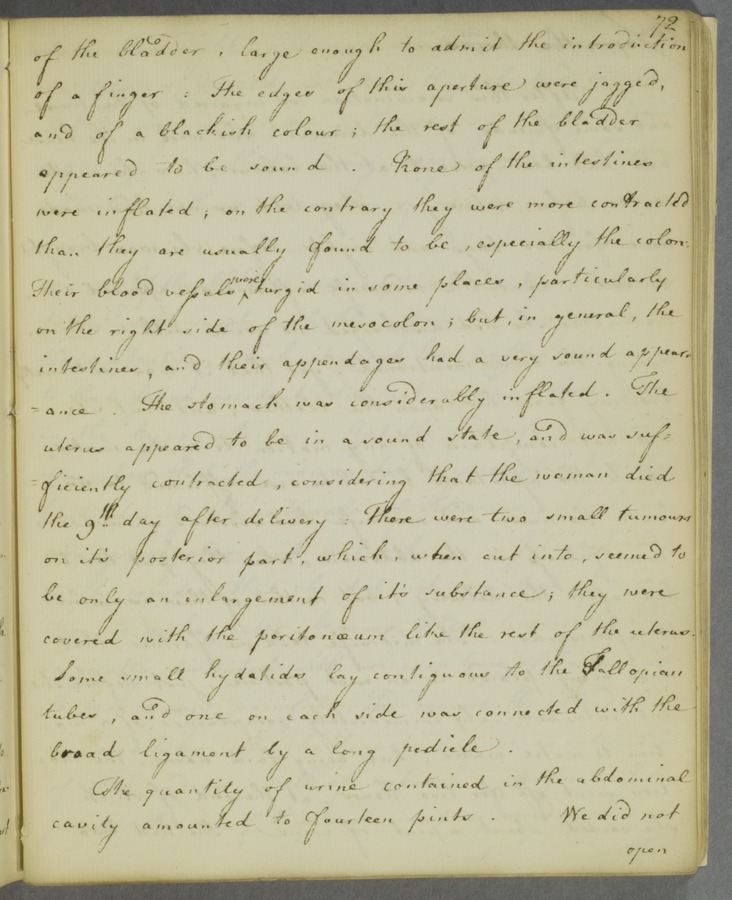 72
of the bladder, large enough to admit the introduction
of a finger : The edges of this aperture were jagged,
and of a blackish colour ; the rest of the bladder
appeared to be sound . None of the intestines
were inflated ; on the contrary they were more contracted
than they are usually found to be , especially the colon.
Their blood vessels were turgid in some places , particularly
on the right side of the mesocolon ; but, in general, the
intestines, and their appendages had a very sound appear=
=ance . The stomach was considerably inflated . The
uterus appeared to be in a sound state, and was suf=
=ficiently contracted , considering that the woman died
the 9th. day after delivery : There were two small tumours
on it's posterior part, which, when cut into, seemed to
be only an enlargement of it's substance ; they were
covered with the peritonæum like the rest of the uterus.
Some small hydatides lay contiguous to the Fallopian
tubes , and one on each side was connected with the
broad ligament by a long pedicle .
The quantity of urine contained in the abdominal
cavity amounted to fourteen pints . We did not
open